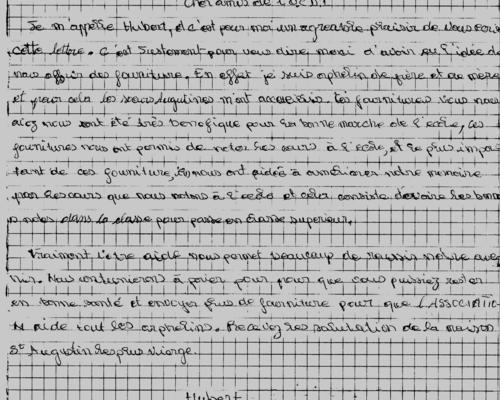 Cher amis de l'O.C.D.I
Je m'appelle Hubert, et c'est pour moi un agréable plaisir de vous écrire
cette lettre. C'est justement pour vous dire merci d'avoir eu l'idée de
nous offrir des fourniture. En effet je suis orphelin de père et de mère
et pour cela les sœurs Augustines m'ont accueillir. Les fournitures vous nous
avez nous sont été très bénéfique pour la bonne marche de l'école, ces
fournitures nous ont permis de noter les cours à l'école, et le plus impo
tant de ces fourniture, ils nous ont aidée à améliorer notre mémoire
par les cours que nous notons à l'école et cela consiste d'avoire les bonne
notes dans la classe pour passe en classe superieur.
Vraiment l'etre aide nous permet beaucoup de reussir notre ave
nir. Nous continuerons à prier pour, pour que vous puissiez rester
en bonne santé et envoyer plus de fourniture pour que L'ASSOCIATIO
N aide tout les orphelins. Recevez les salutation de la maison
St Augustin les plus
Hubert